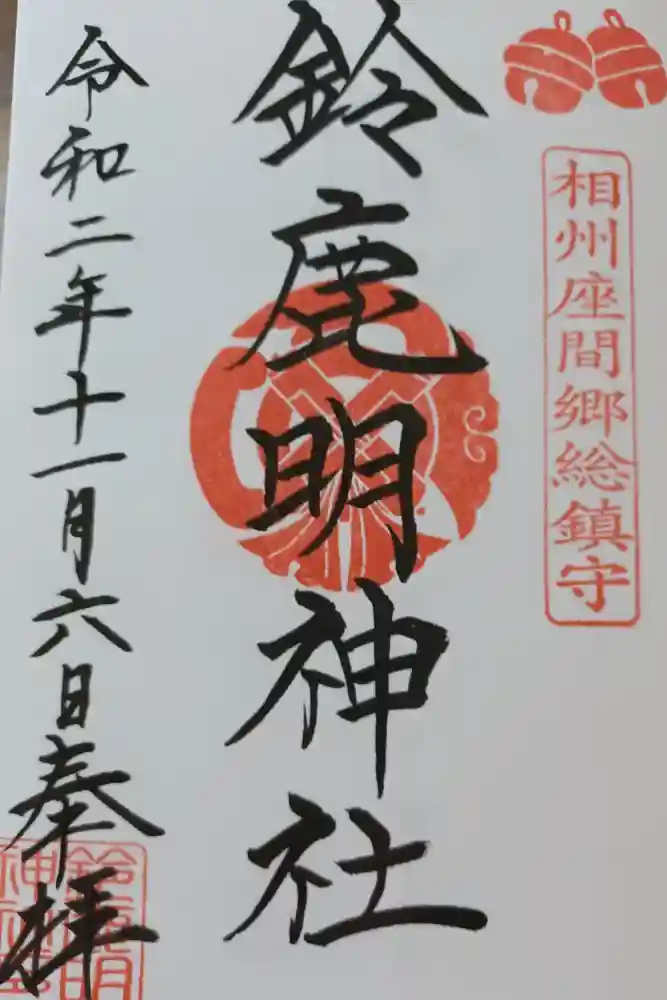 相州座間郷総鎮守
鈴鹿明神社
令和二年十一月六日奉拝